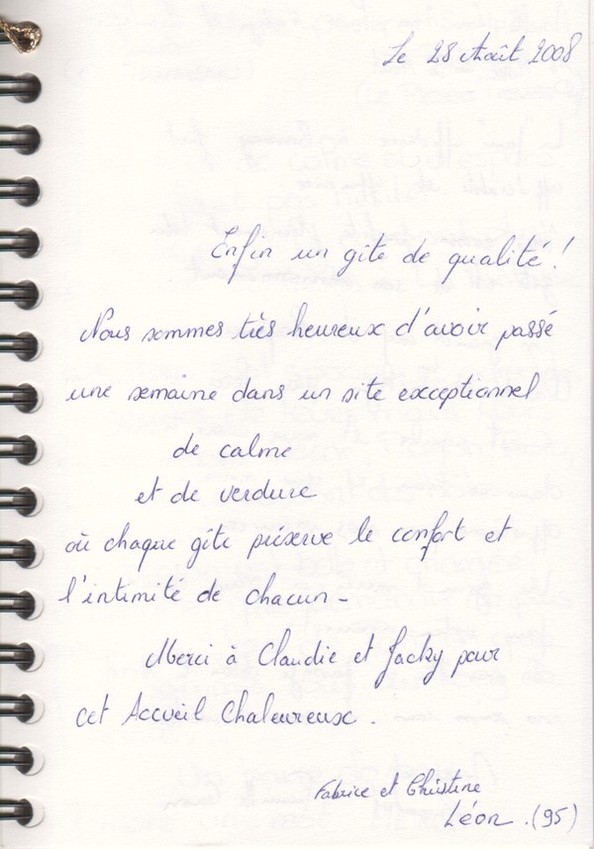 Le 28 Août 2008
Enfin un gîte de qualité !
Nous sommes très heureux d'avoir passé
une semaine dans un site exceptionnel
de calme
et de verdure
où chaque gîte préserve le confort et
l'intimité de chacun -
Merci à Claudie et Jacky pour
cet Accueil Chaleureux .
Fabrice et Christine
Léon . (95)